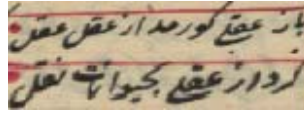 باز عقلی کورمد از عقل عقل
کرد از عقلی بحیوانات نقل